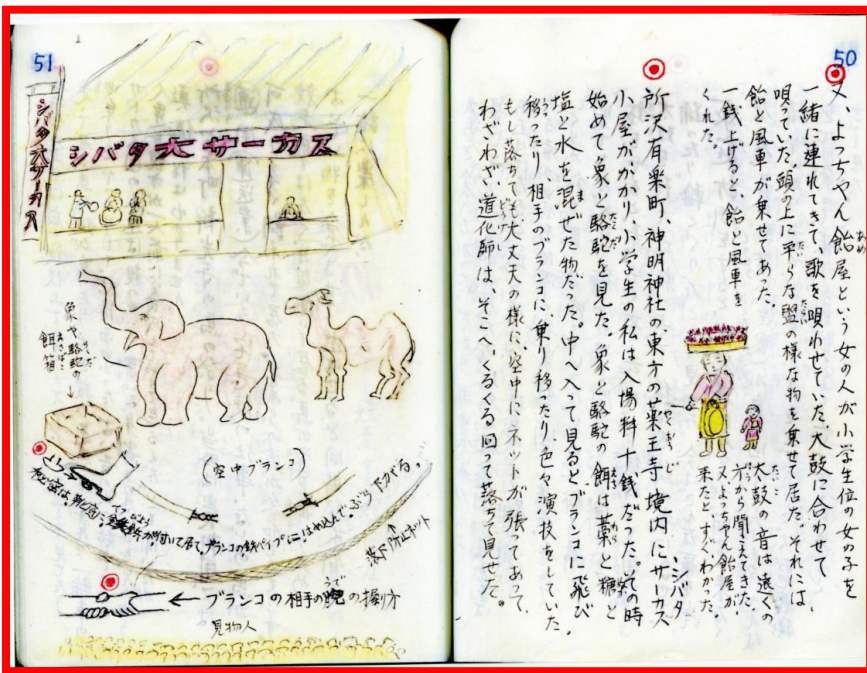 50
又、よっちゃん飴屋という女の人が小学生位の女の子を
一緒に連れてきて、歌を唄わせていた。太鼓に合わせて
唄っていた。頭の上に平らな盥の様な物を乗せて居た。それには、
飴と風車が乗せてあった。
一銭上げると、飴と風車を
くれた。
太鼓の音は遠くの
方から聞えてきた。
又よっちゃん飴屋が、
来たと、すぐわかった
所沢有楽町、神明神社の東方の薬王寺境内にサーカス
シバタ
小屋がかかり、小学生の私は入場料十銭だった。その時
始めて象と駱駝を見た。象と駱駝の餌は藁と糠と
塩と水を混ぜた物だった。中へ入って見ると、ブランコに飛び
移ったり相手のブランコに、乗り移ったり、色々演技をしていた。
もし落ちても大丈夫の様に、空中にネットが張ってあって、
わざわざ、道化師は、そこへ、くるくる回って落ちて見せた。
51
シバタ大サーカス
シバタ大サーカス
象や駱駝の
餌箱
(空中ブランコ)
秘密は、靴底に
付いて居て、ブランコの鉄パイプにはめ込んで、ぶら下がる。
落下防止ネット
←ブランコの相手の腕の握り方
見物人